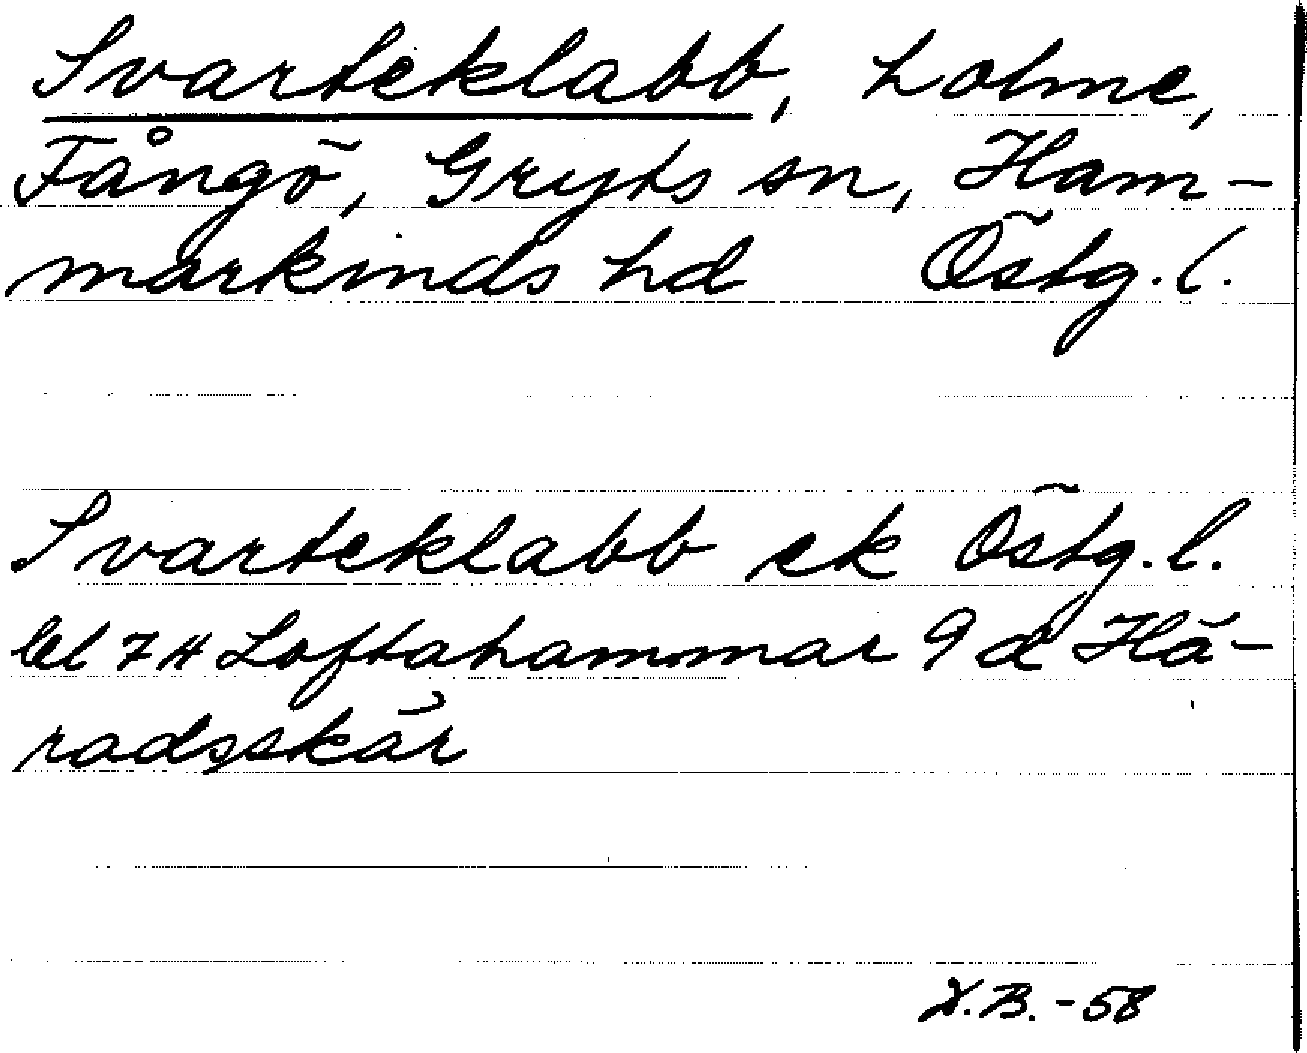 Svarteklabb, holme,
Fångö, Gryts sn, Ham-
markinds hd Östg. l.
Svarteklabb ek Östg. l.
bl 7 H Loftahammar 9 d Hä-
radsskär
X.B. -58